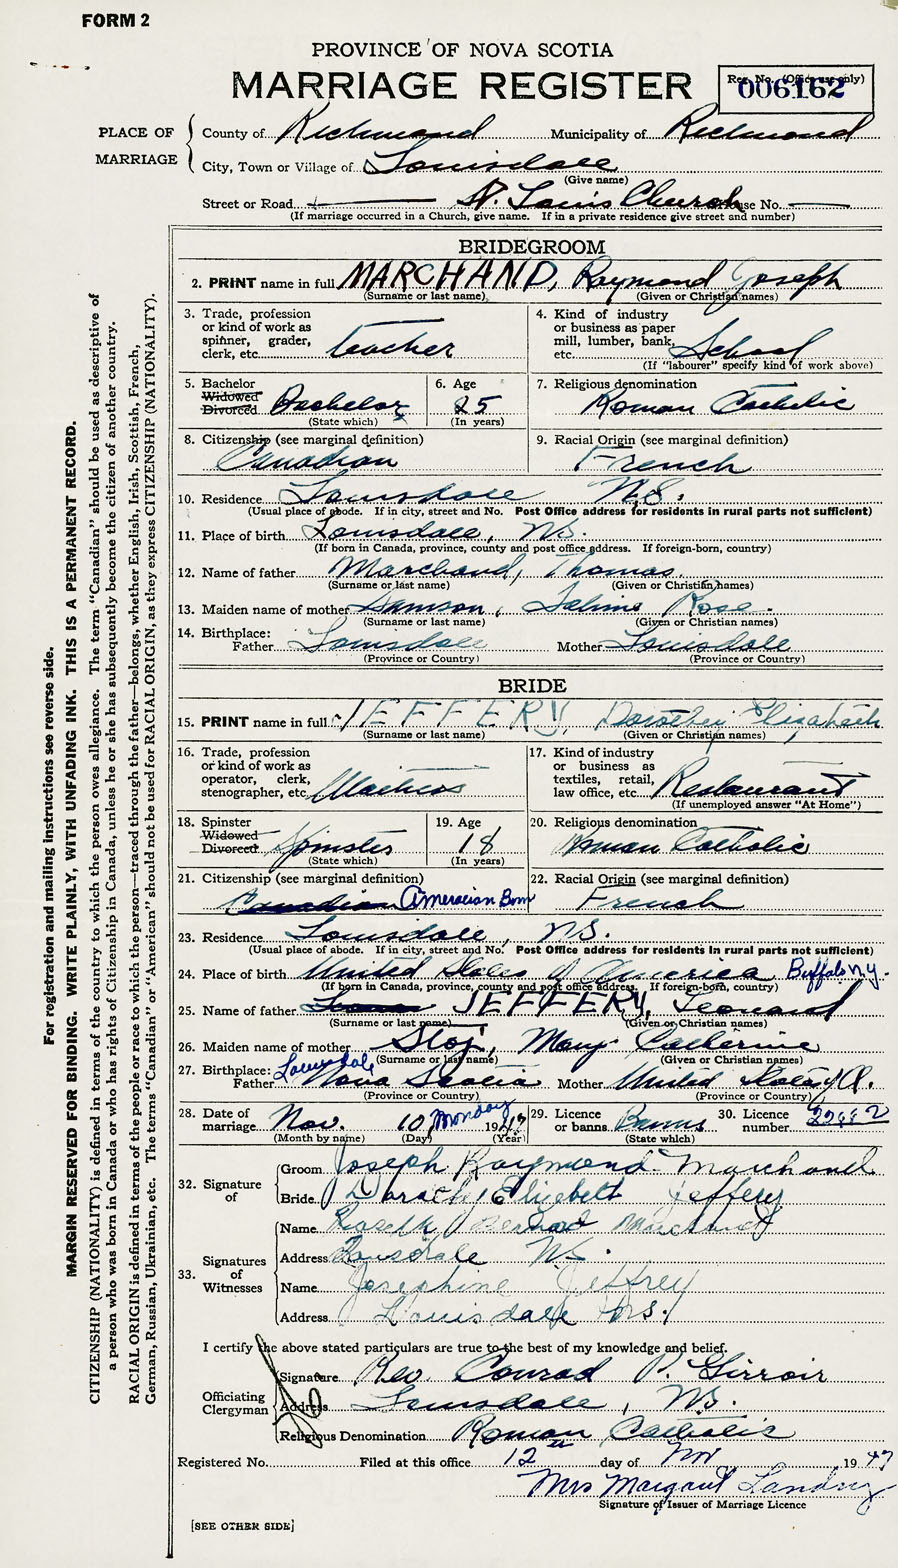 FORM 2
PROVINCE OF NOVA SCOTIA
MARRIAGE REGISTER
Reg. No. (Office use only)
006162
PLACE OF MARRIAGE
County of Richmond Municipality of Richmond
City, Town or Village of Louisdale
(Give name)
Street or Road St. Louis Church House No.
(If marriage occurred in a Church, give name. If in a private residence give street and number)
BRIDEGROOM
2. PRINT name in full MARCHAND, Raymond Joseph
(Surname or last name) (Given or Christian names)
3. Trade, profession or kind of work as spinner, grader, clerk, etc. teacher
4. Kind of industry or business as paper mill, lumber, bank, etc. School
(If "labourer" specify kind of work above)
5. Bachelor Widowed Divorced Bachelor
(State which)
6. Age 25
(In years)
7. Religious denomination
Roman Catholic
8. Citizenship (see marginal definition)
Canadian
9. Racial Origin (see marginal definition)
French
10. Residence Louisdale N.S.
(Usual place of abode. If in city, street and No. Post Office address for residents in rural parts not sufficient)
11. Place of birth Louisdale, N.S.
(If born in Canada, province, county and post office address. If foreign-born, country)
12. Name of father Marchand, Thomas
(Surname or last name) (Given or Christian names)
13. Maiden name of mother Samson, Rose
(Surname or last name) (Given or Christian names)
14. Birthplace:
Father Louisdale Mother Louisdale
(Province or Country) (Province or Country)
BRIDE
15. PRINT name in full JEFFERY, Dorothy Elizabeth
(Surname or last name) (Given or Christian names)
16. Trade, profession or kind of work as operator, clerk, stenographer, etc. Waitress
17. Kind of industry or business as textiles, retail, law office, etc. Restaurant
(If unemployed answer "At Home")
18. Spinster Widowed Divorced Spinster
(State which)
19. Age 18
(In years)
20. Religious denomination
Roman Catholic
21. Citizenship (see marginal definition)
Canadian Ameracian Born
22. Racial Origin (see marginal definition)
French
23. Residence Louisdale, N.S.
(Usual place of abode. If in city, street and No. Post Office address for residents in rural parts not sufficient)
24. Place of birth United States of America Buffalo N.Y.
(If born in Canada, province, county and post office address. If foreign-born, country)
25. Name of father JEFFERY, Leonard
(Surname or last name) (Given or Christian names)
26. Maiden name of mother Stoj, Mary Catherine
(Surname or last name) (Given or Christian names)
27. Birthplace: Louisdale
Father Nova Scotia Mother United States of A.
(Province or Country) (Province or Country)
28. Date of marriage Nov. 10 Monday 1947
(Month by name) (Day) (Year)
29. Licence or banns Banns
(State which)
30. Licence number
32. Signature of
Groom Joseph Raymond Marchand
Bride Dorothy Elizabeth Jeffery
33. Signatures of Witnesses
Name Bernard Marchand
Address Louisdale N.S.
Name Josephine Jeffrey
Address Louisdale N.S.
I certify the above stated particulars are true to the best of my knowledge and belief.
Officiating Clergyman
Signature Rev. Conrad P. Girroir
Address Louisdale, N.S.
Religious Denomination Roman Catholic
Registered No. Filed at this office 12th day of Nov 1947
Mrs Margaret Landry
Signature of Issuer of Marriage Licence
[SEE OTHER SIDE]
For registration and mailing instructions see reverse side.
MARGIN RESERVED FOR BINDING. WRITE PLAINLY, WITH UNFADING INK. THIS IS A PERMANENT RECORD.
CITIZENSHIP (NATIONALITY) is defined in terms of the country to which the person owes allegiance. The term "Canadian" should be used as descriptive of
a person who was born in Canada or who has rights of Citizenship in Canada, unless he or she has subsequently become the citizen of another country.
RACIAL ORIGIN is defined in terms of the people or race to which the person—traced through the father—belongs, whether English, Irish, Scottish, French,
German, Russian, Ukrainian, etc. The terms "Canadian" or "American" should not be used for RACIAL ORIGIN, as they express CITIZENSHIP (NATIONALITY).